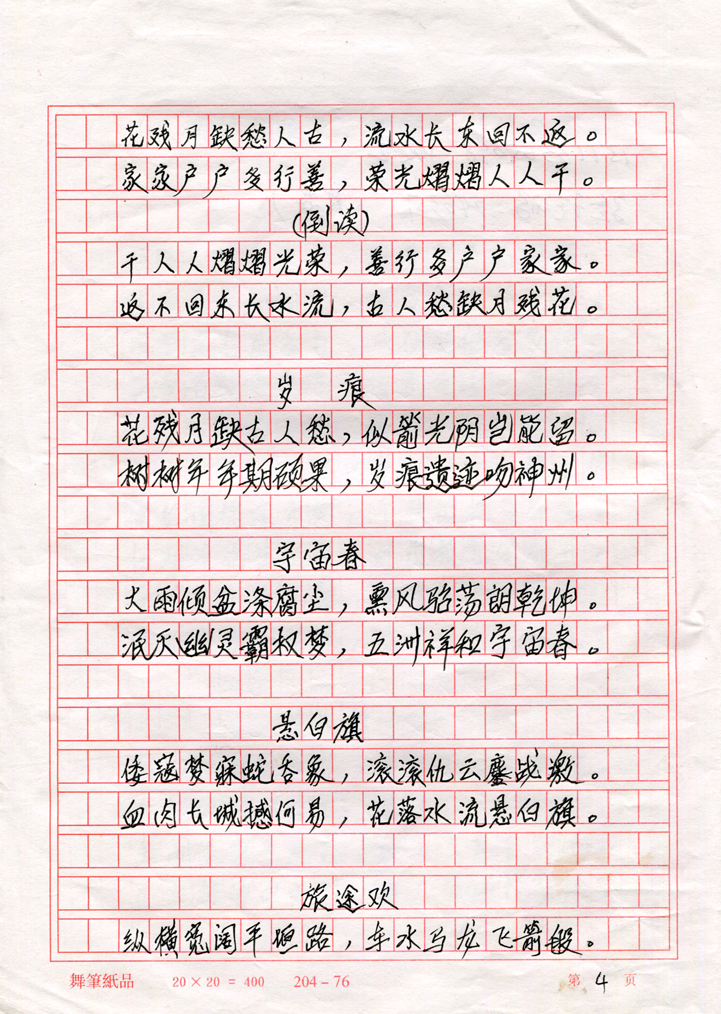 花残月缺愁人古，流水长东回不返。
家家户户多行善，荣光熠熠人人干。
(倒读)
干人人熠熠光荣，善行多户户家家。
返不回东长水流，古人愁缺月残花。
岁 痕
花残月缺古人愁，似箭光阴岂能留。
树树年年期硕果，岁痕遗迹吻神州。
宇宙春
大雨倾盆涤腐尘，熏风骀荡朗乾坤。
泯灭幽灵霸权梦，五洲祥和宇宙春。
悬白旗
倭寇梦寐蛇吞象，滚滚仇云鏖战激。
血肉长城撼何易，花落水流悬白旗。
旅途欢
纵横宽阔平坦路，车水马龙飞箭般。
舞筆紙品 20×20=400 204-76 第 4 页